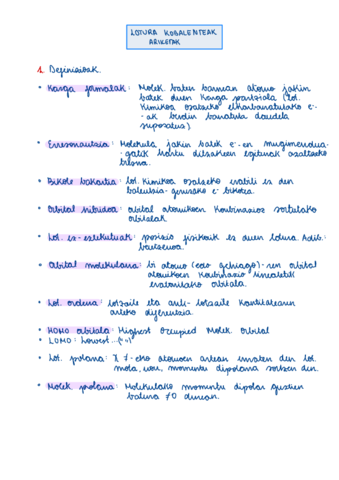 LOTURA KOBALENTEAK
ARIKETAK
1. Definizioak.
• Karga formalak: Molek. baten barruan atomo jakin
batek duen karga partziala (lot.
kimikoa osatzeko elkarbanatutako e⁻
-ak berdin banatuta daudela
suposatuz)
• Erresonantzia: Molekula jakin batek e⁻-en mugimendua-
gatik hartu ditzakeen egiturak azaltzeko
tresna.
• Bikote bakartia: lot. kimikoa osatzeko erabili ez den
balentzia-geruzako e⁻ bikotea.
• Orbital hibridoa: orbital atomikoen konbinazioz sortutako
orbitalak
• Lot. ez-eslekutuak: posizio finkorik ez duen lotura Adib:
bentzenoa.
• Orbital molekularra: bi atomo (edo gehiago)-ren orbital
atomikoen konbinazio linealetik
eratorritako orbitala.
• Lot. ordena: lotzaile eta anti-lotzaile kantitatearen
arteko diferentzia.
• HOMO orbitala: Highest Occupied Molek. Orbital
• LUMO: Lowest...("")
• Lot. polarra: X ≠-eko atomoen artean ematen den lot.
mota, non, momentu dipolarra sortzen den.
• Molek polarra: Molekulako momentu dipolar guztien
batura ≠0 denean.